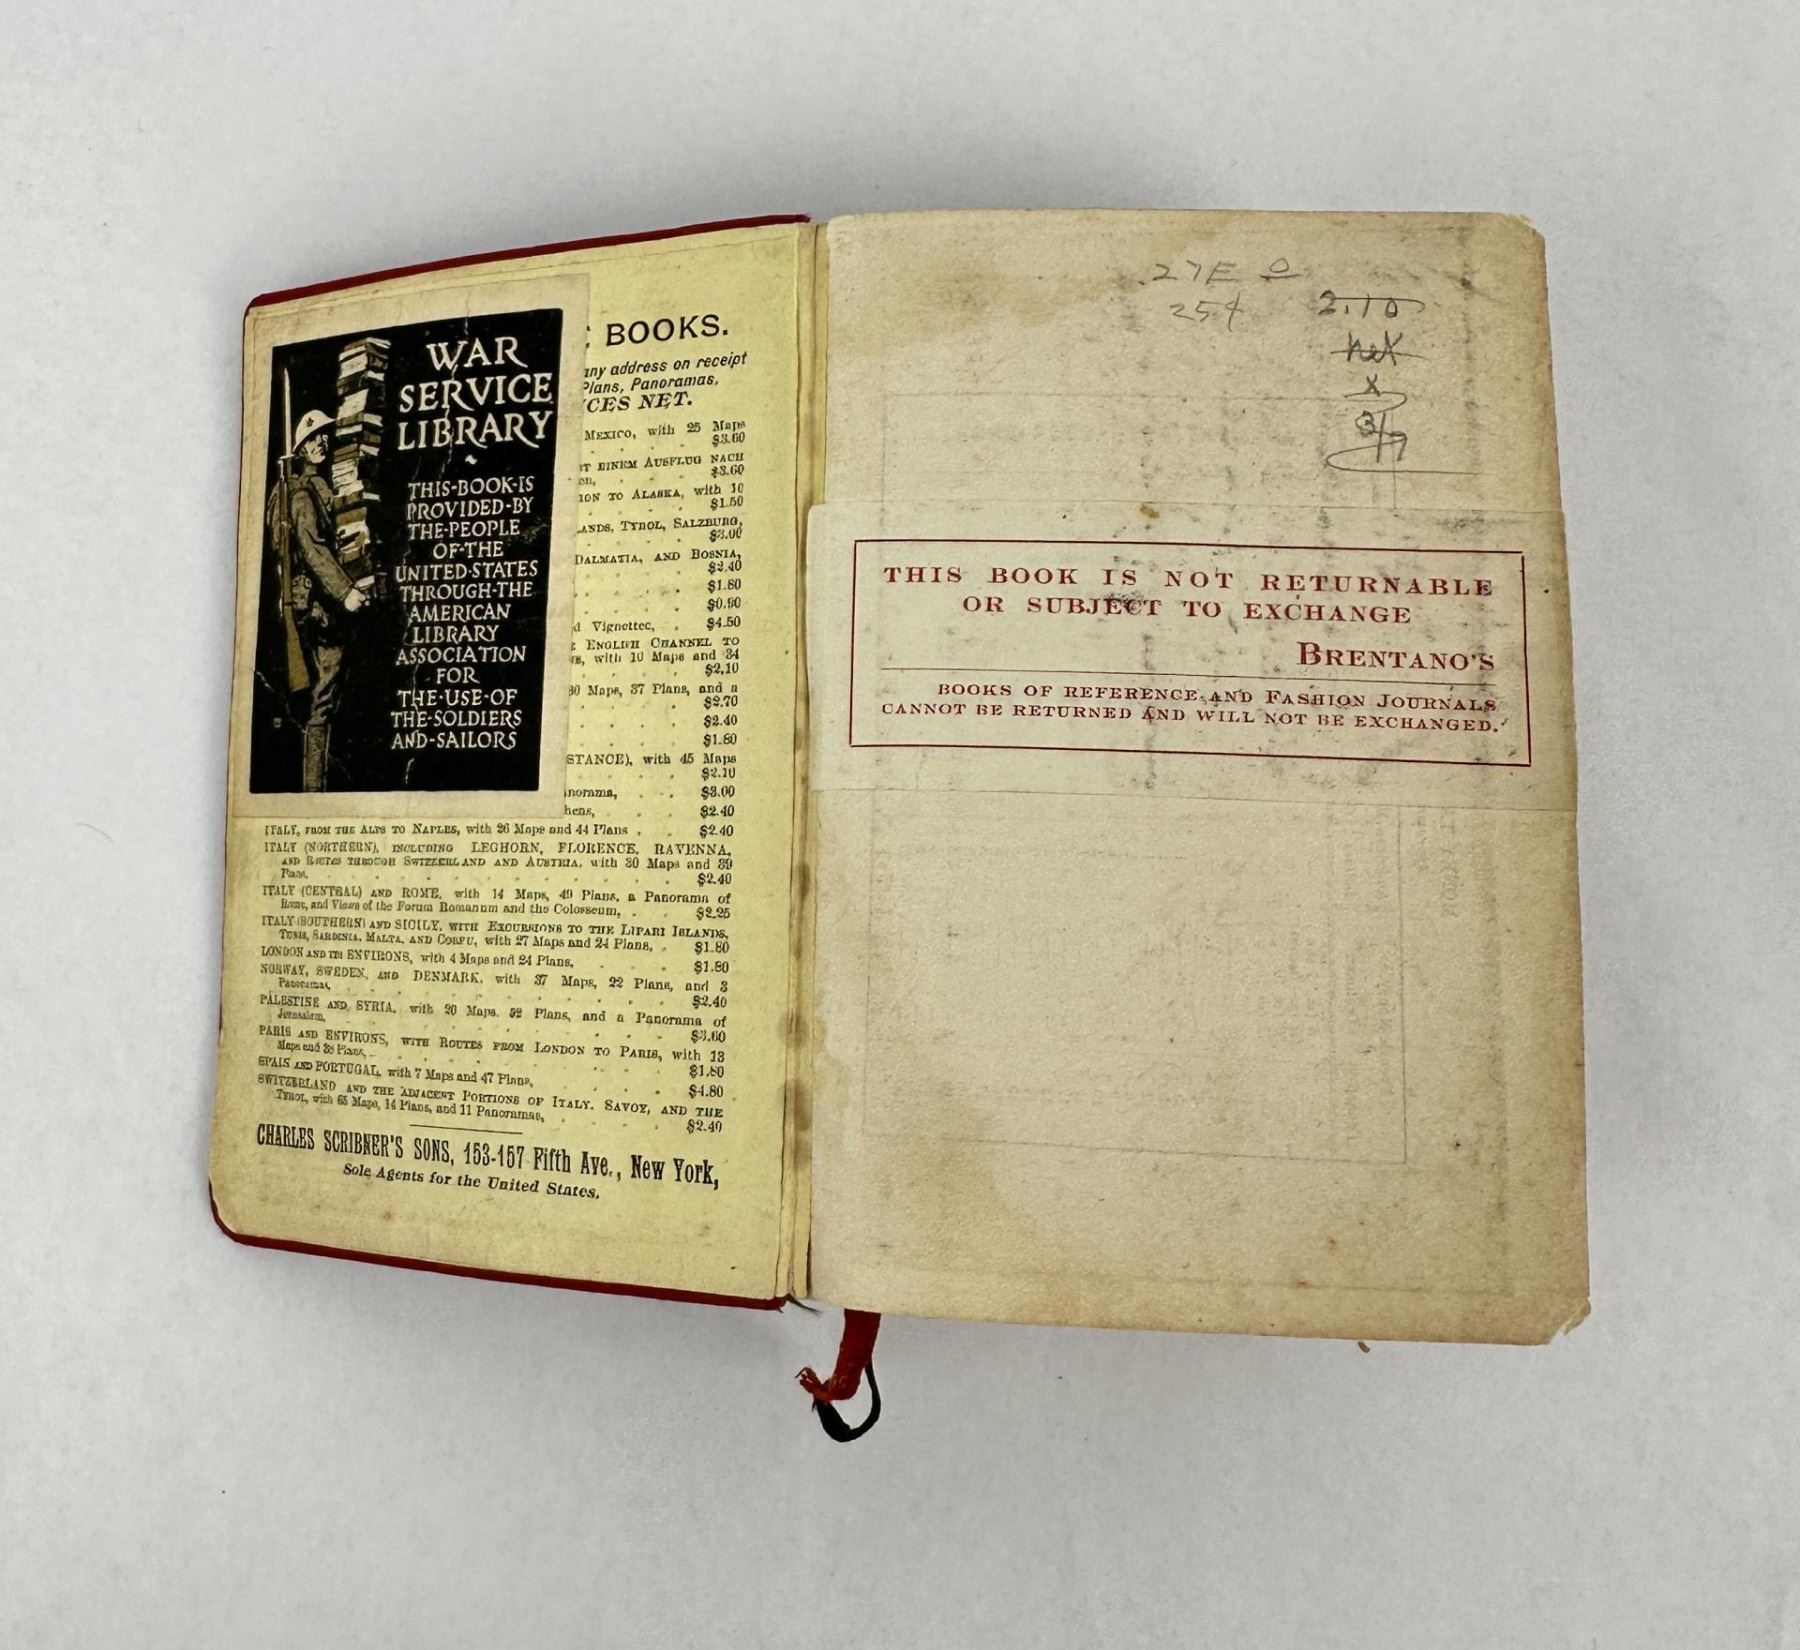 WAR
SERVICE
LIBRARY
THIS·BOOK·IS
PROVIDED·BY
THE·PEOPLE
OF·THE
UNITED·STATES
THROUGH·THE
AMERICAN
LIBRARY
ASSOCIATION
FOR
THE·USE·OF
THE·SOLDIERS
AND·SAILORS
BOOKS.
any address on receipt
Plans, Panoramas,
NET.
MEXICO, with 25 Maps
$3.60
EINEM AUSFLUG NACH
$3.60
TO ALASKA, with 10
$1.50
TYROL, SALZBURG,
$3.00
DALMATIA, AND BOSNIA,
$2.40
$1.80
$0.90
Vignettes, $4.50
ENGLISH CHANNEL TO
with 10 Maps and 34
$2.10
30 Maps, 37 Plans, and a
$2.70
$2.40
$1.80
with 45 Maps
$2.10
$3.00
$2.40
ITALY, FROM THE ALPS TO NAPLES, with 26 Maps and 44 Plans . $2.40
ITALY (NORTHERN), INCLUDING LEGHORN, FLORENCE, RAVENNA,
AND ROUTES THROUGH SWITZERLAND AND AUSTRIA, with 30 Maps and 39
Plans, $2.40
ITALY (CENTRAL) AND ROME, with 14 Maps, 49 Plans, a Panorama of
Rome, and Views of the Forum Romanum and the Colosseum, . $2.25
ITALY (SOUTHERN) AND SICILY, WITH EXCURSIONS TO THE LIPARI ISLANDS,
TUNIS, SARDINIA, MALTA, AND CORFU, with 27 Maps and 24 Plans, . $1.80
LONDON AND ITS ENVIRONS, with 4 Maps and 24 Plans, $1.80
NORWAY, SWEDEN, AND DENMARK, with 37 Maps, 22 Plans, and 3
Panoramas, $2.40
PALESTINE AND SYRIA, with 20 Maps, 52 Plans, and a Panorama of
Jerusalem, $3.60
PARIS AND ENVIRONS, WITH ROUTES FROM LONDON TO PARIS, with 13
Maps and 38 Plans, $1.80
SPAIN AND PORTUGAL, with 7 Maps and 47 Plans, $4.80
SWITZERLAND AND THE ADJACENT PORTIONS OF ITALY, SAVOY, AND THE
TYROL, with 65 Maps, 14 Plans, and 11 Panoramas, $2.40
CHARLES SCRIBNER'S SONS, 153-157 Fifth Ave., New York,
Sole Agents for the United States.
27E O
25¢
2.10
net
x
THIS BOOK IS NOT RETURNABLE
OR SUBJECT TO EXCHANGE
BRENTANO'S
BOOKS OF REFERENCE AND FASHION JOURNALS
CANNOT BE RETURNED AND WILL NOT BE EXCHANGED.